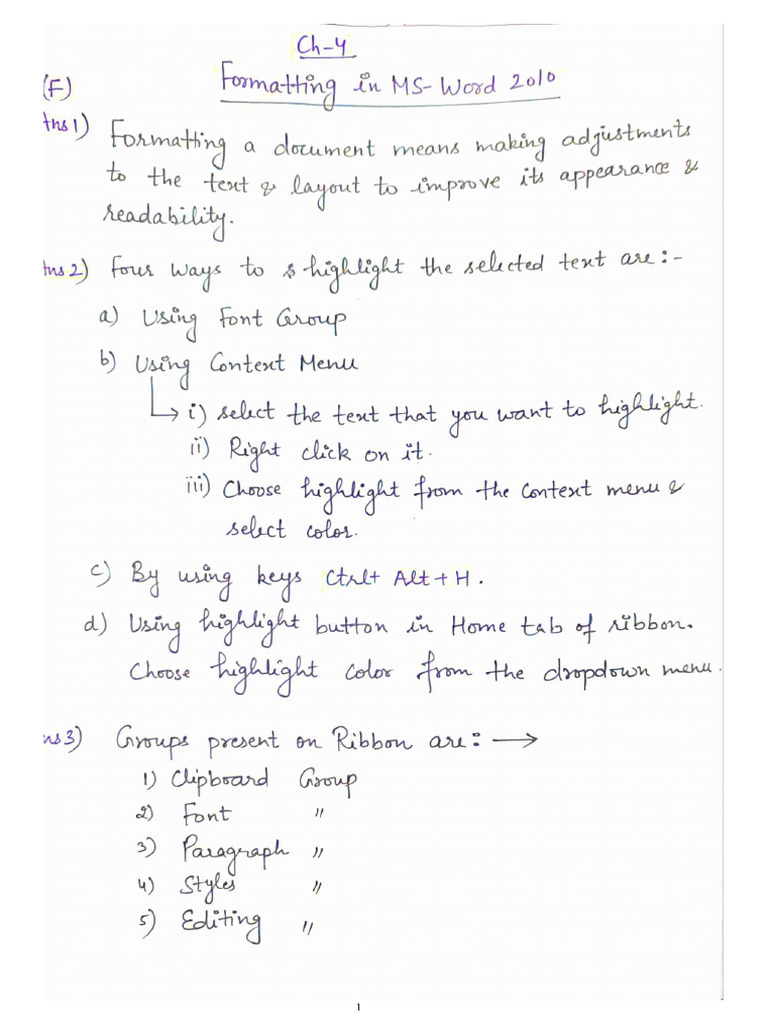 Ch-4
(F) Formatting in MS-Word 2010
Ans 1) Formatting a document means making adjustments
to the text & layout to improve its appearance &
readability.
Ans 2) Four ways to highlight the selected text are:-
a) Using Font Group
b) Using Context Menu
↳ i) select the text that you want to highlight.
ii) Right click on it.
iii) Choose highlight from the context menu &
select color.
c) By using keys Ctrl+ Alt + H.
d) Using highlight button in Home tab of ribbon.
Choose highlight color from the dropdown menu.
ns 3) Groups present on Ribbon are: →
1) Clipboard Group
2) Font "
3) Paragraph "
4) Styles "
5) Editing "
1